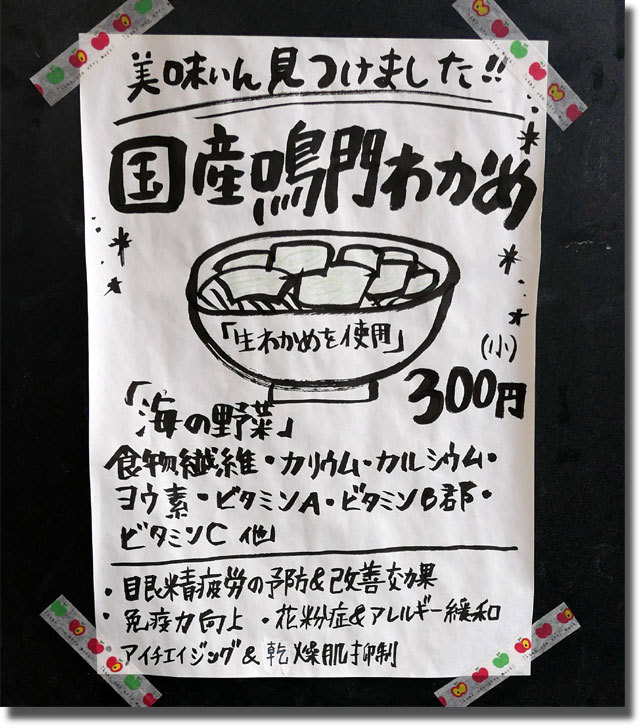 美味いん見つけました!!
国産鳴門わかめ
「生わかめを使用」
(小)
300円
「海の野菜」
食物繊維・カリウム・カルシウム・
ヨウ素・ビタミンA・ビタミンB郡・
ビタミンC 他
・眼精疲労の予防&改善効果
・免疫力向上 ・花粉症&アレルギー緩和
アイチエイジング&乾燥肌抑制